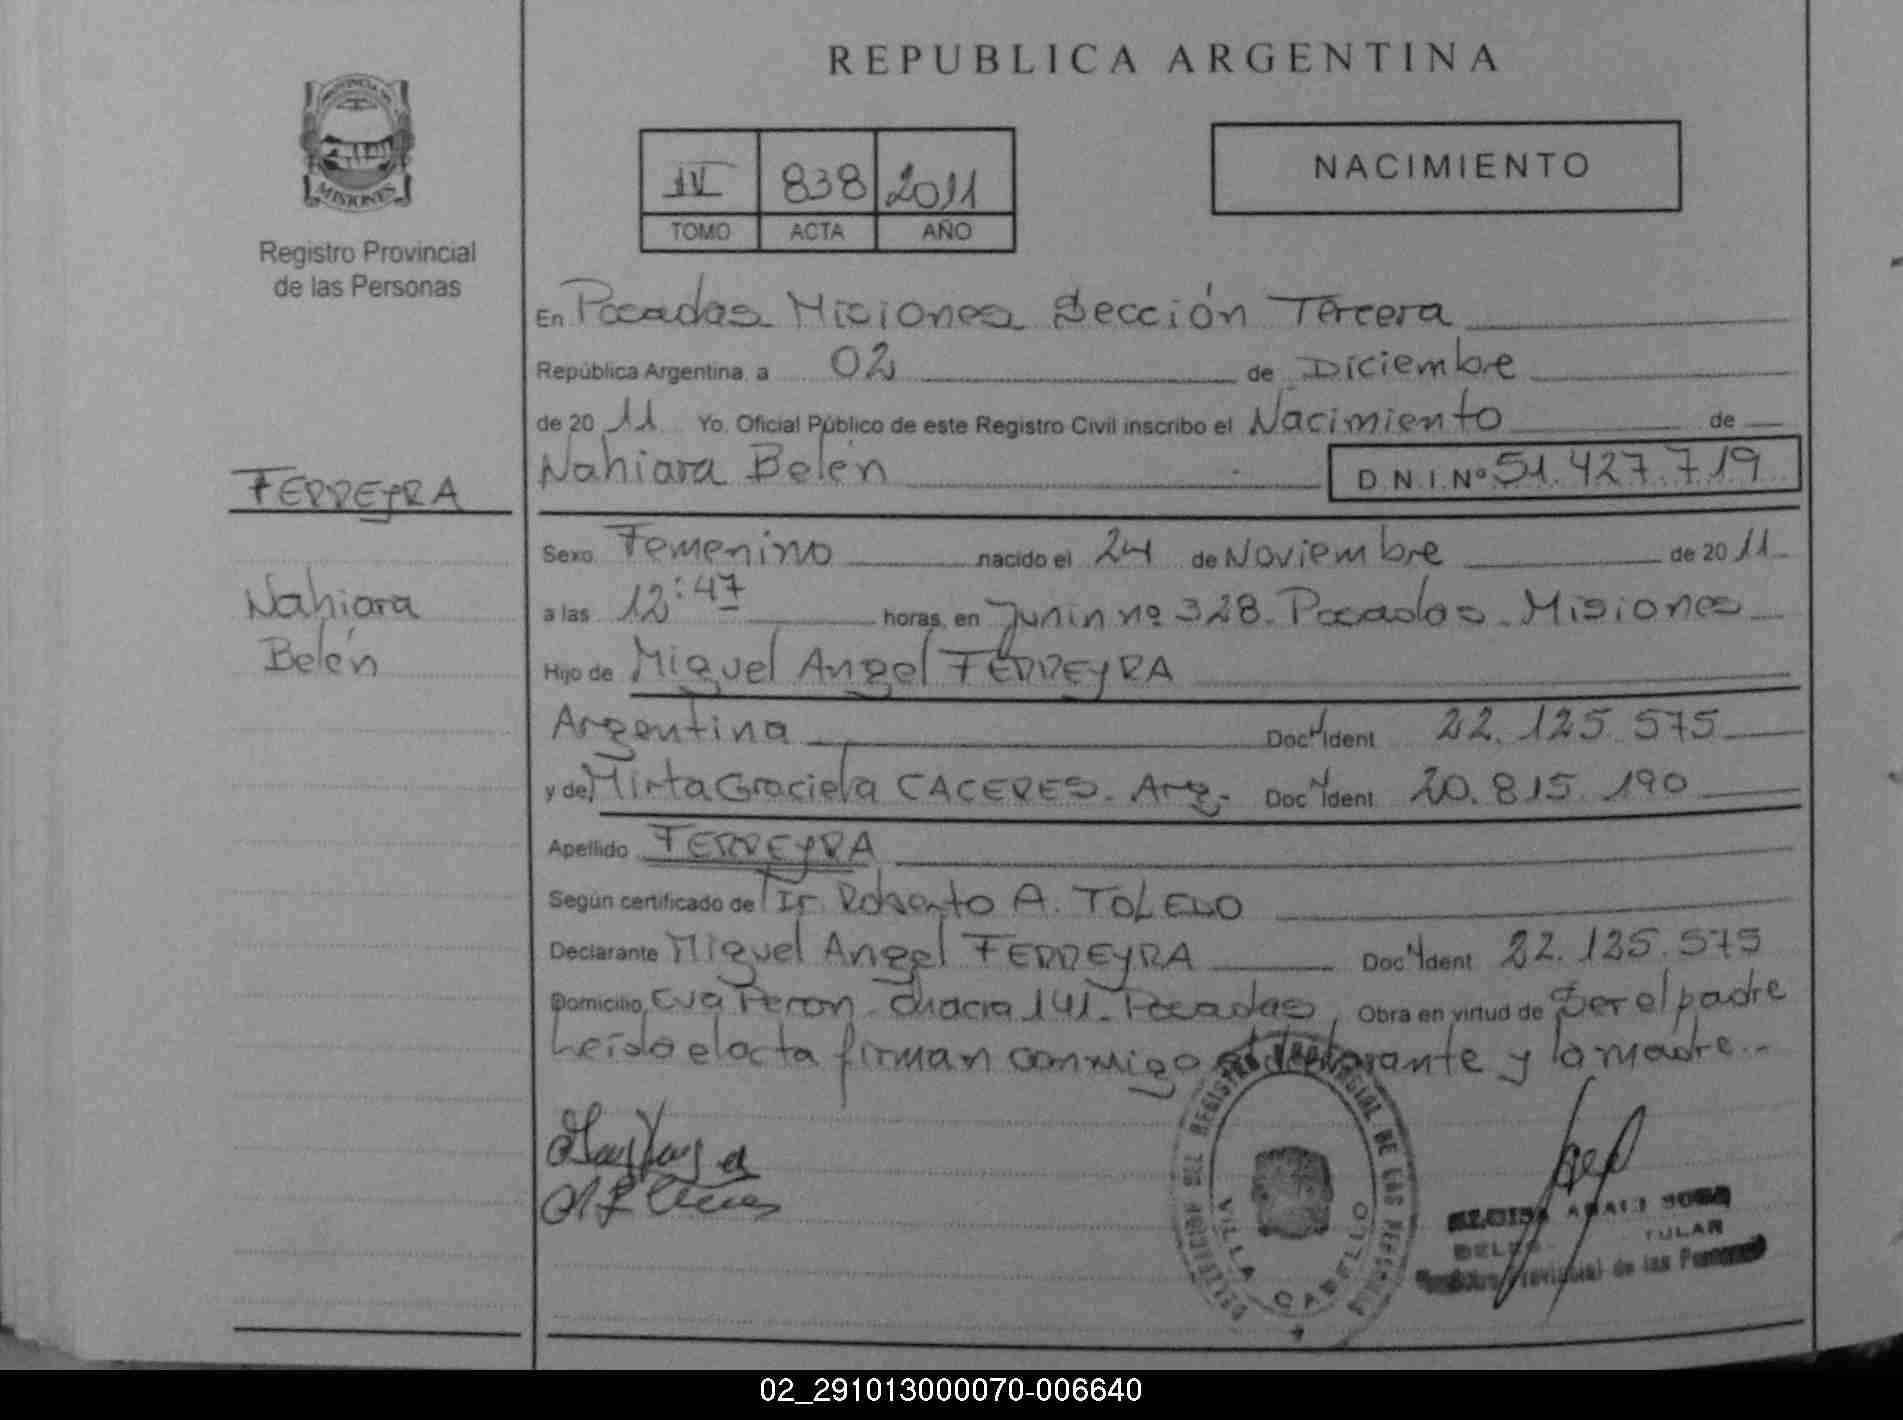 REPUBLICA ARGENTINA
PROVINCIA DE
MISIONES
Registro Provincial
de las Personas
IV 838 2011
TOMO ACTA AÑO
NACIMIENTO
En Posadas Misiones Sección Tercera
República Argentina, a 02 de Diciembre
de 20 11 Yo, Oficial Público de este Registro Civil inscribo el Nacimiento de
Nahiara Belén D.N.I.Nº 51.427.719
FERREYRA
Nahiara
Belén
Sexo Femenino nacido el 24 de Noviembre de 20 11
a las 12:47 horas, en Junin nº 328. Posadas. Misiones
Hijo de Miguel Angel FERREYRA
Argentina Doc. Ident 22.125.575
y de Mirta Graciela CACERES. Arg. Doc. Ident 20.815.190
Apellido FERREYRA
Según certificado de Roberto A. TOLEDO
Declarante Miguel Angel FERREYRA Doc. Ident 22.125.575
Domicilio Eva Peron. chacra 141. Posadas Obra en virtud de Ser el padre
Leída el acta firman conmigo el declarante y la madre..
DEL REGISTRO PROVINCIAL DE LAS PERSONAS
VILLA CABELLO
Provincial de las Personas
02_291013000070-006640